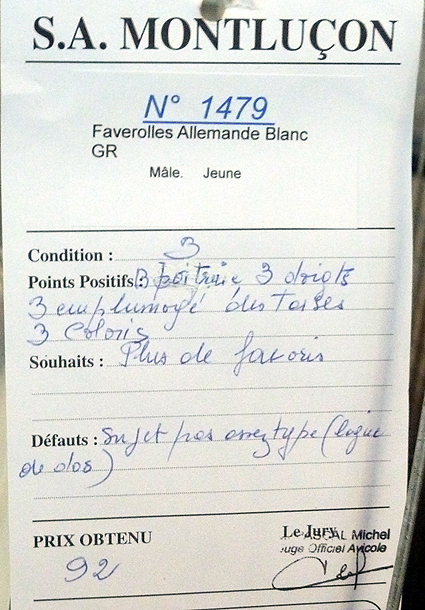 S.A. MONTLUÇON
N° 1479
Faverolles Allemande Blanc
GR
Mâle. Jeune
Condition : B
Points Positifs : B poitrine 3 doigts
B emplumage des tarses
B Coloris
Souhaits : Plus de favoris
Défauts : Sujet pas assez type (ligne
de dos)
PRIX OBTENU
Le Jury
PASCAL Michel
Juge Officiel Avicole
92